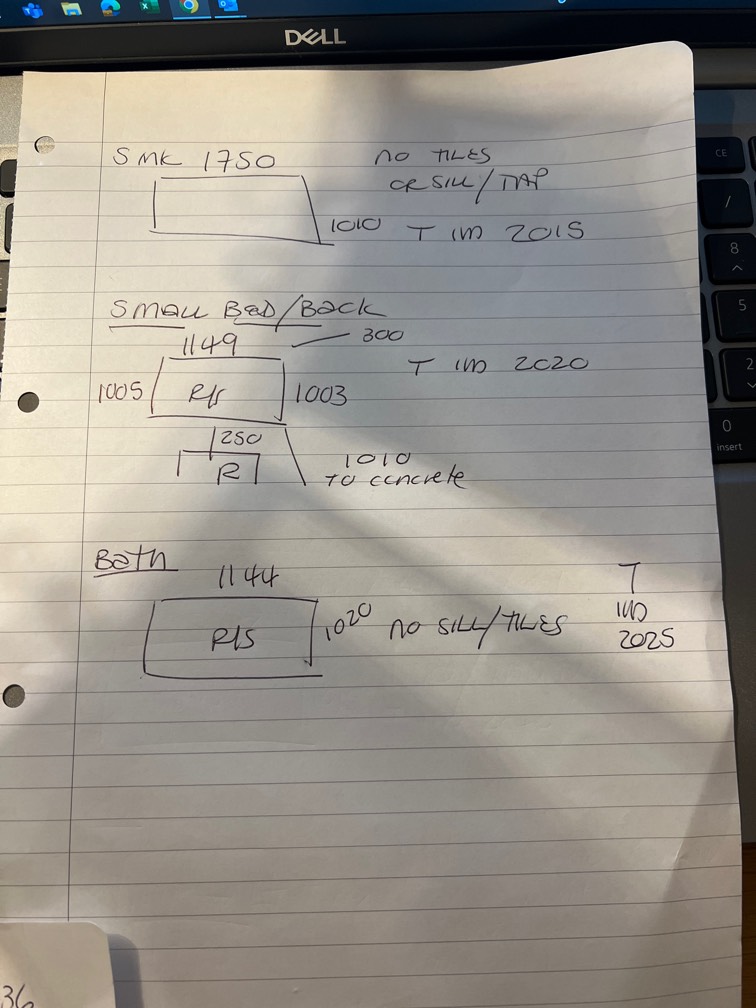 DELL
SMK 1750
NO TILES
OR SILL / TAP
1010 T IND 2015
SMALL BED/BACK
1149
300
T IND 2020
1005
R/S
1003
250
R
1010
TO CONCRETE
Bath
1144
R/S
1020
NO SILL/TILES
T
IND
2025
36
CE
/
8
5
2
0
insert